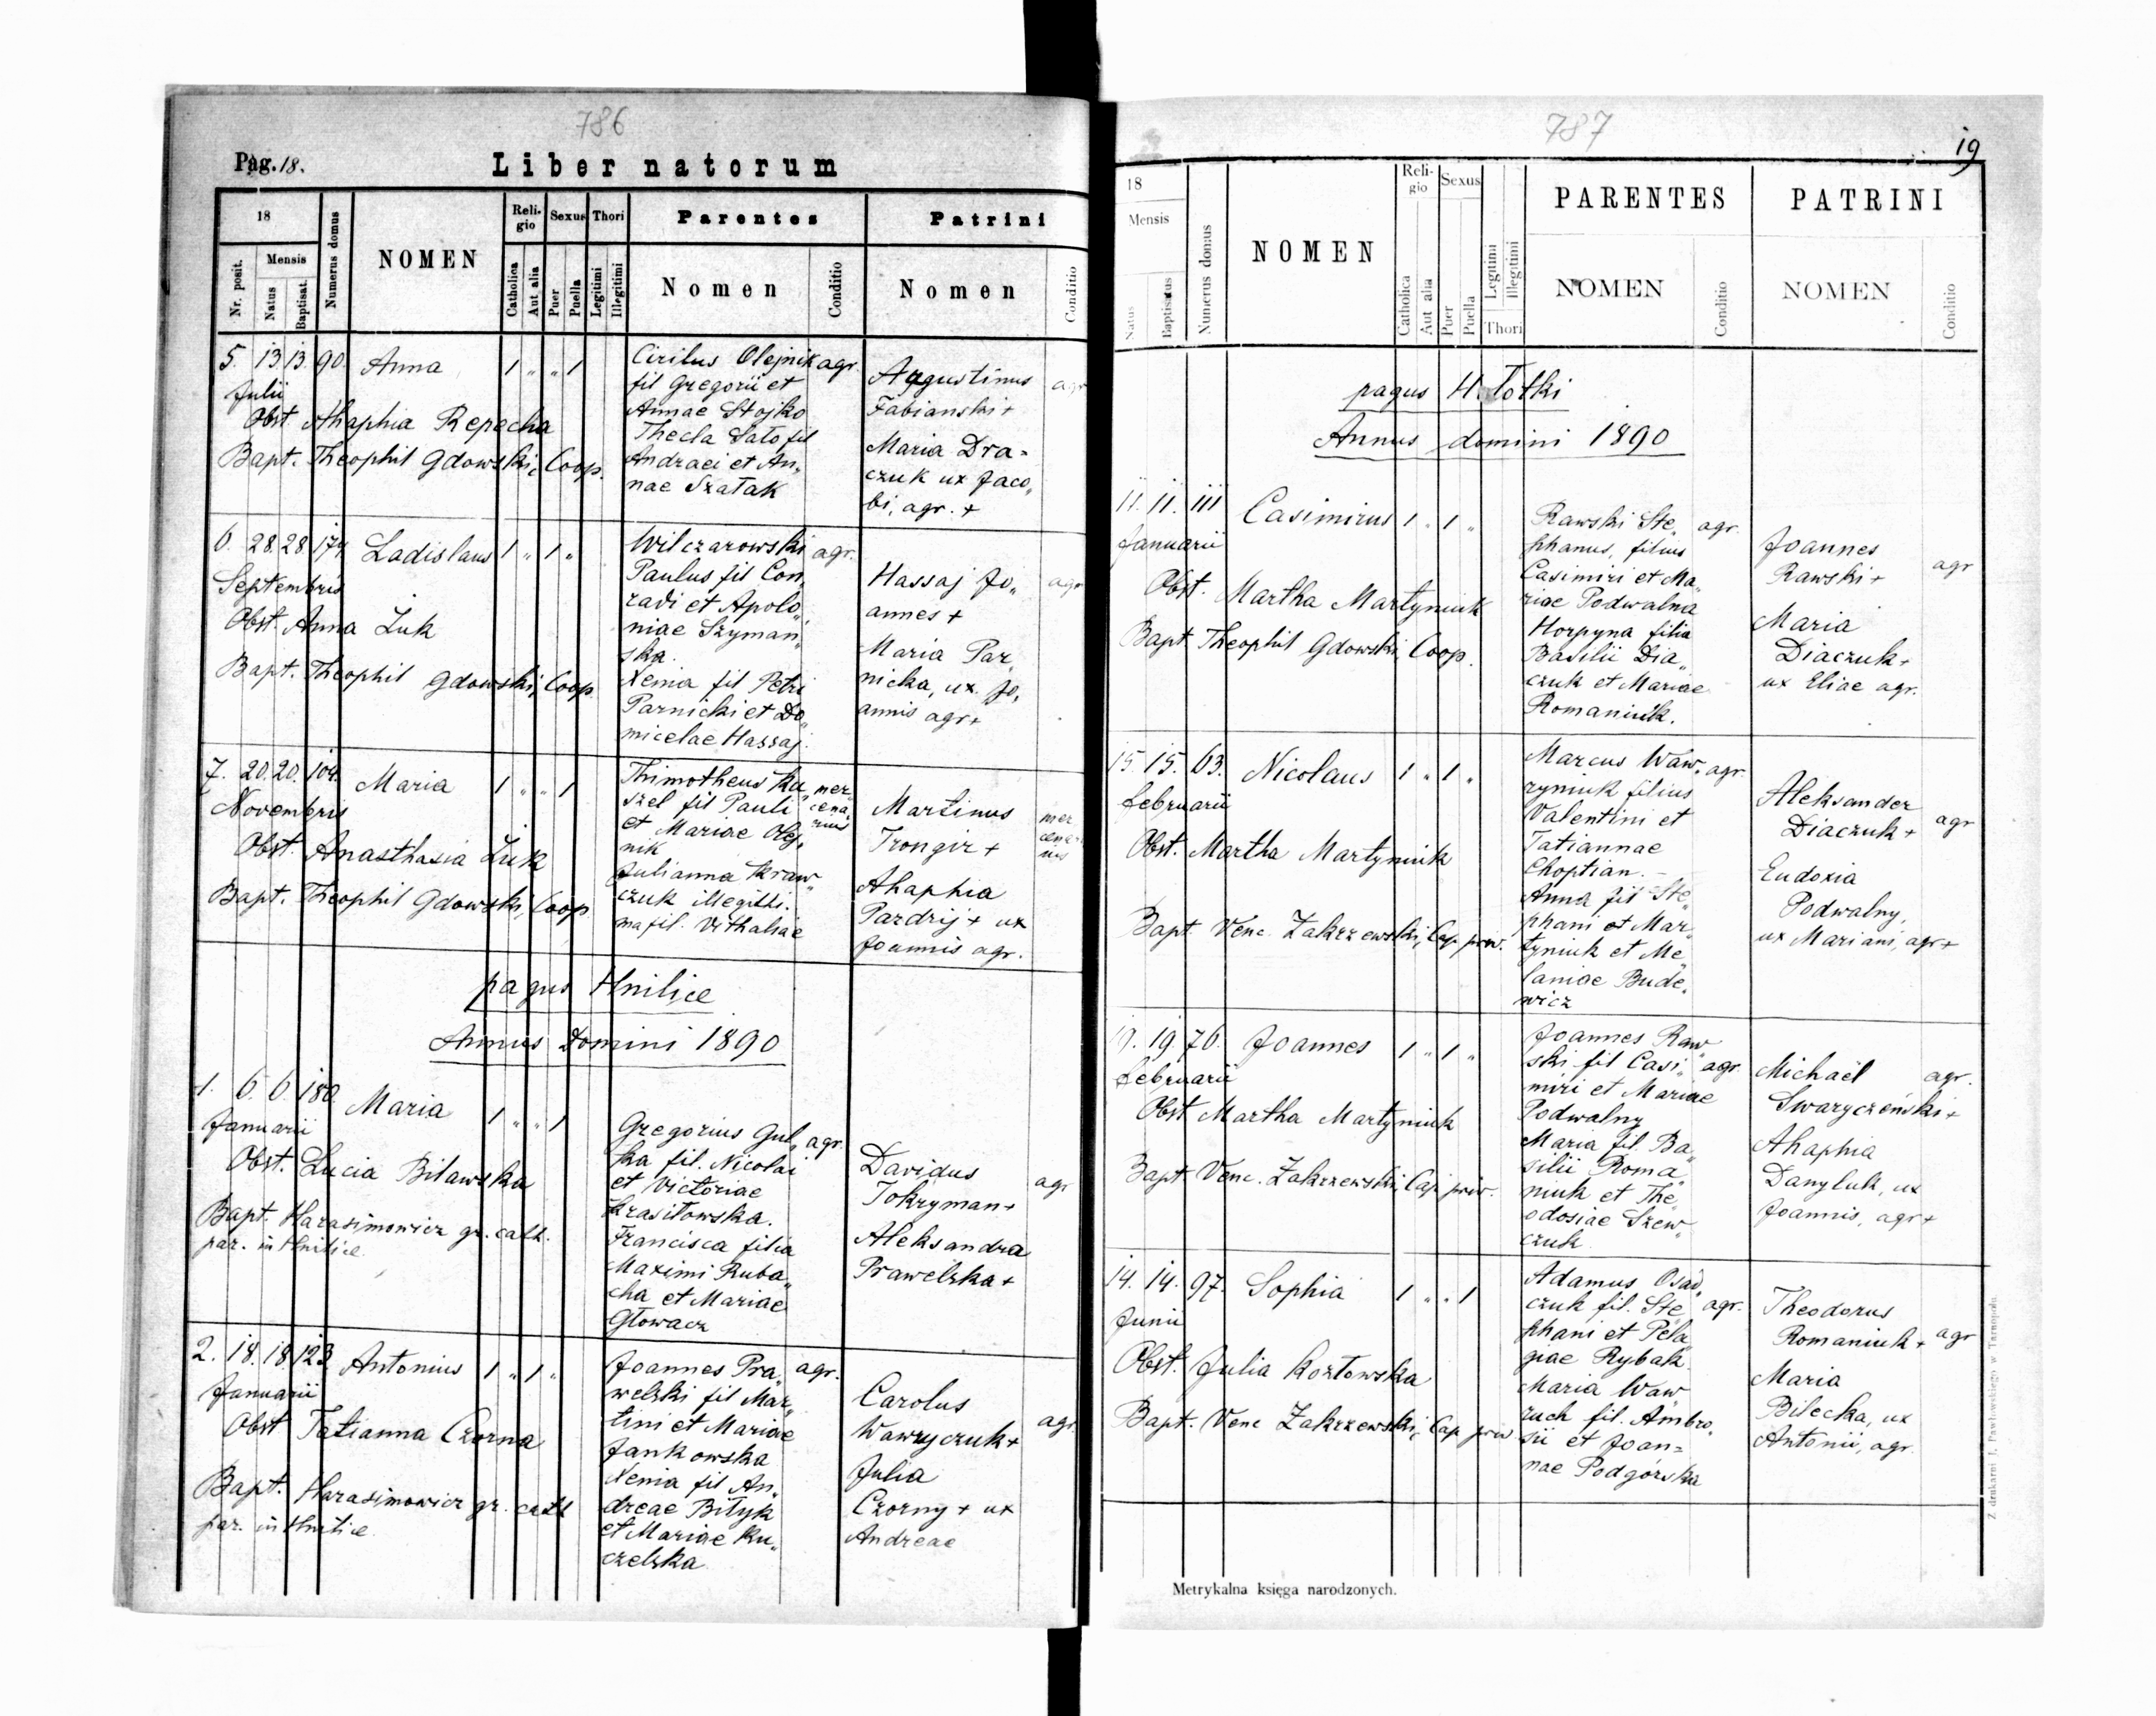 786
Pag. 18.
Liber natorum
18
Nr. posit.
Mensis
Natus
Baptisat.
Numerus domus
NOMEN
Religio
Catholica
Aut alia
Sexus
Puer
Puella
Thori
Legitimi
Illegitimi
Parentes
Nomen
Conditio
Patrini
Nomen
Conditio
5. 13. 13. 90. Anna 1 " " 1
Julii
Obst. Ahaphia Repecka
Bapt. Theophil Gdowski, Coop.
Cirilus Olejnik agr.
fil Gregorii et
Annae Stojko
Thecla Sato fil
Andraei et An„
nae Szatak
Augustinus agr
Fabianski +
Maria Dra=
czuk ux Jaco„
bi, agr. +
6. 28. 28. 174. Ladislaus 1 " 1 "
Septembris
Obst. Anna Żuk
Bapt. Theophil Gdowski, Coop.
Wilczarowski agr.
Paulus fil Con„
radi et Apolo„
niae Szyman„
ska.
Xenia fil Petri
Parnicki et Do„
micelae Hassaj.
Hassaj Jo„ agr
annes +
Maria Par„
nicka, ux. Jo„
annis agr +
7. 20. 20. 104. Maria 1 " " 1
Novembris
Obst. Anasthasia Żuk
Bapt. Theophil Gdowski, Coop
Thimotheus Ku„ mer„
szel fil Pauli cena„
et Mariae Olej„ rius
nik
Julianna Kraw„
czuk illegitti.
ma fil. Vithaliae
Martinus mer
Trongir + cena=
rius
Ahaphia
Pardrij + ux
Joannis agr.
pagus Hnilice
Annus Domini 1890
1. 6. 6. 180. Maria 1 " " 1
Januarii
Obst. Lucia Bilawska
Bapt. Harasimowicz gr. cath.
par. in Hnilice
Gregorius Gul„ agr.
ka fil. Nicolai
et Victoriae
Krasitowska.
Francisca filia
Maximi Ruba„
cha et Mariae
Głowacz
Davidus agr
Tokryman +
Aleksandra
Prawelska +
2. 18. 18. 123. Antonius 1 " 1 "
Januarii
Obst Tatianna Czorna
Bapt. Harasimowicz gr. cath
par. in Hnilice
Joannes Pra„ agr.
welski fil Mar„
tini et Mariae
Jankowska
Xenia fil An„
dreae Bityk
et Mariae Ku„
czelska
Carolus agr.
Wawryczuk +
Julia
Czorny + ux
Andreae
787
19
18
Mensis
Natus
Baptisatus
Numerus domus
NOMEN
Religio
Catholica
Aut alia
Sexus
Puer
Puella
Legitimi
Illegitimi
Thori
PARENTES
NOMEN
Conditio
PATRINI
NOMEN
Conditio
pagus H. Totki
Annus domini 1890
11. 11. 111 Casimirus 1 " 1 "
Januarii
Obst. Martha Martyniuk
Bapt Theophil Gdowski, Coop.
Rawski Ste„ agr.
phanus, filius
Casimiri et Ma„
riae Podwalna
Horpyna filia
Basilii Dia„
czuk et Mariae
Romaniuk.
Joannes agr
Rawski +
Maria
Diaczuk +
ux Eliae agr.
15. 15. 63. Nicolaus 1 " 1 "
februarii
Obst. Martha Martyniuk
Bapt. Venc. Zakrzewski, Cap priv.
Marcus Waw„ agr.
ryniuk filius
Valentini et
Tatiannae
Choptian. -
Anna fil Ste„
phani et Mar„
tyniuk et Me„
laniae Bude„
wicz
Aleksander agr
Diaczuk +
Eudoxia
Podwalny,
ux Mariani, agr +
19. 19. 76. Joannes 1 " 1 "
februarii
Obst Martha Martyniuk
Bapt. Venc. Zakrzewski, Cap priv.
Joannes Raw„
ski fil Casi„ agr.
miri et Mariae
Podwalny
Maria fil. Ba„
silii Roma„
niuk et The„
odosiae Szew„
czuk
Michaël agr.
Swaryczeński +
Ahaphia
Danyluk, ux
Joannis, agr +
14. 14. 97. Sophia 1 " " 1
Junii
Obst. Julia Kozłowska
Bapt. Venc Zakrzewski, Cap priv
Adamus Osad„
czuk fil. Ste„ agr.
phani et Pela„
giae Rybak
Maria Waw„
ruch fil. Ambro„
sii et Joan=
nae Podgórska
Theodorus agr
Romaniuk +
Maria
Bilecka, ux
Antonii, agr.
Metrykalna księga narodzonych.
Z drukarni J. Pawłowskiego w Tarnopolu.